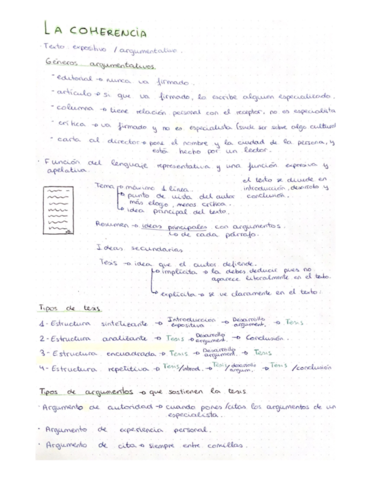 LA COHERENCIA
· Texto expositivo / argumentativo.
Géneros argumentativos
- editorial → nunca va firmado.
- artículo → si que va firmado, lo escribe alguien especializado.
- columna → tiene relación personal con el receptor, no es especialista
- crítica → va firmado y no es especialista (suele ser sobre algo cultural)
- carta al director → pone el nombre y la ciudad de la persona, y
está hecho por un lector.
· Función del lenguaje representativa y una función expresiva y
apelativa.
el texto se divide en
introducción, desarrollo y
conclusión.
Tema → máximo 1 línea.
→ punto de vista del autor
más elogio, menos crítica.
→ idea principal del texto.
Resumen → ideas principales con argumentos.
↳ de cada párrafo.
Ideas secundarias
Tesis → idea que el autor defiende.
↳ implícita → la debes deducir pues no
aparece literalmente en el texto.
↳ explícita → se ve claramente en el texto.
Tipos de tesis
1 - Estructura sintetizante → Introducción expositiva → Desarrollo argument. → Tesis
2 - Estructura analizante → Tesis → Desarrollo argument. → Conclusión.
3 - Estructura encuadrada → Tesis → Desarrollo argument. → Tesis
4 - Estructura repetitiva → Tesis → Tesis / desarrollo argum. → Tesis / conclusión
Tipos de argumentos → que sostienen la tesis
· Argumento de autoridad → cuando pones/citas los argumentos de un
especialista.
· Argumento de experiencia personal.
· Argumento de cita → siempre entre comillas.